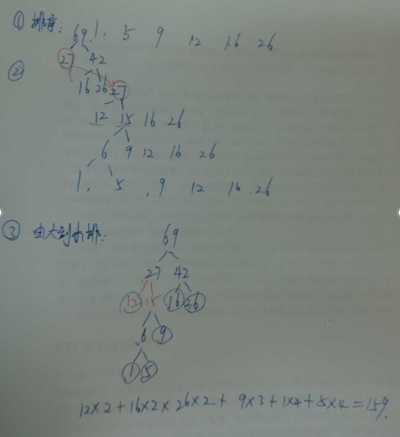 ① 排序: 1. 5 9 12 16 26
69
② 27 42
16 26 27
12 15 16 26
6 9 12 16 26
1. 5 . 9 12 16 26
③ 由大到小排:
69
27 42
12 15 16 26
6 9
1 5
12×2+16×2×26×2+ 9×3+1×4+5×4=159.